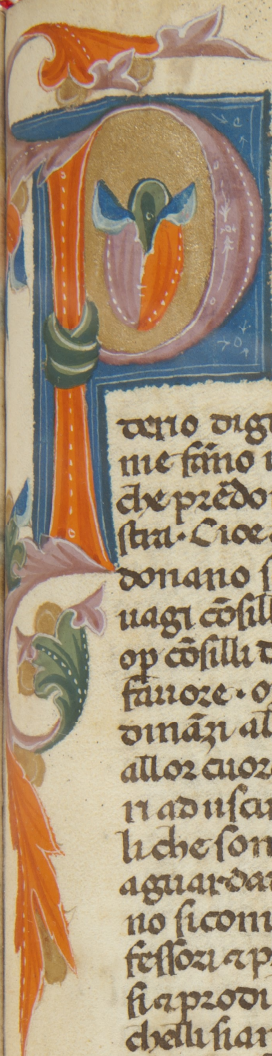 P
derio dig
me sc̃no i
che predo
stra. Cioe
donano s
uagi cõsill
op̃ cõsilli d
fauore. o
dinãzi al
allor cuor
ri ad usci
li che son
aguardar
no sicom
fessori ⁊ p
si ⁊ prodi
chelli sian